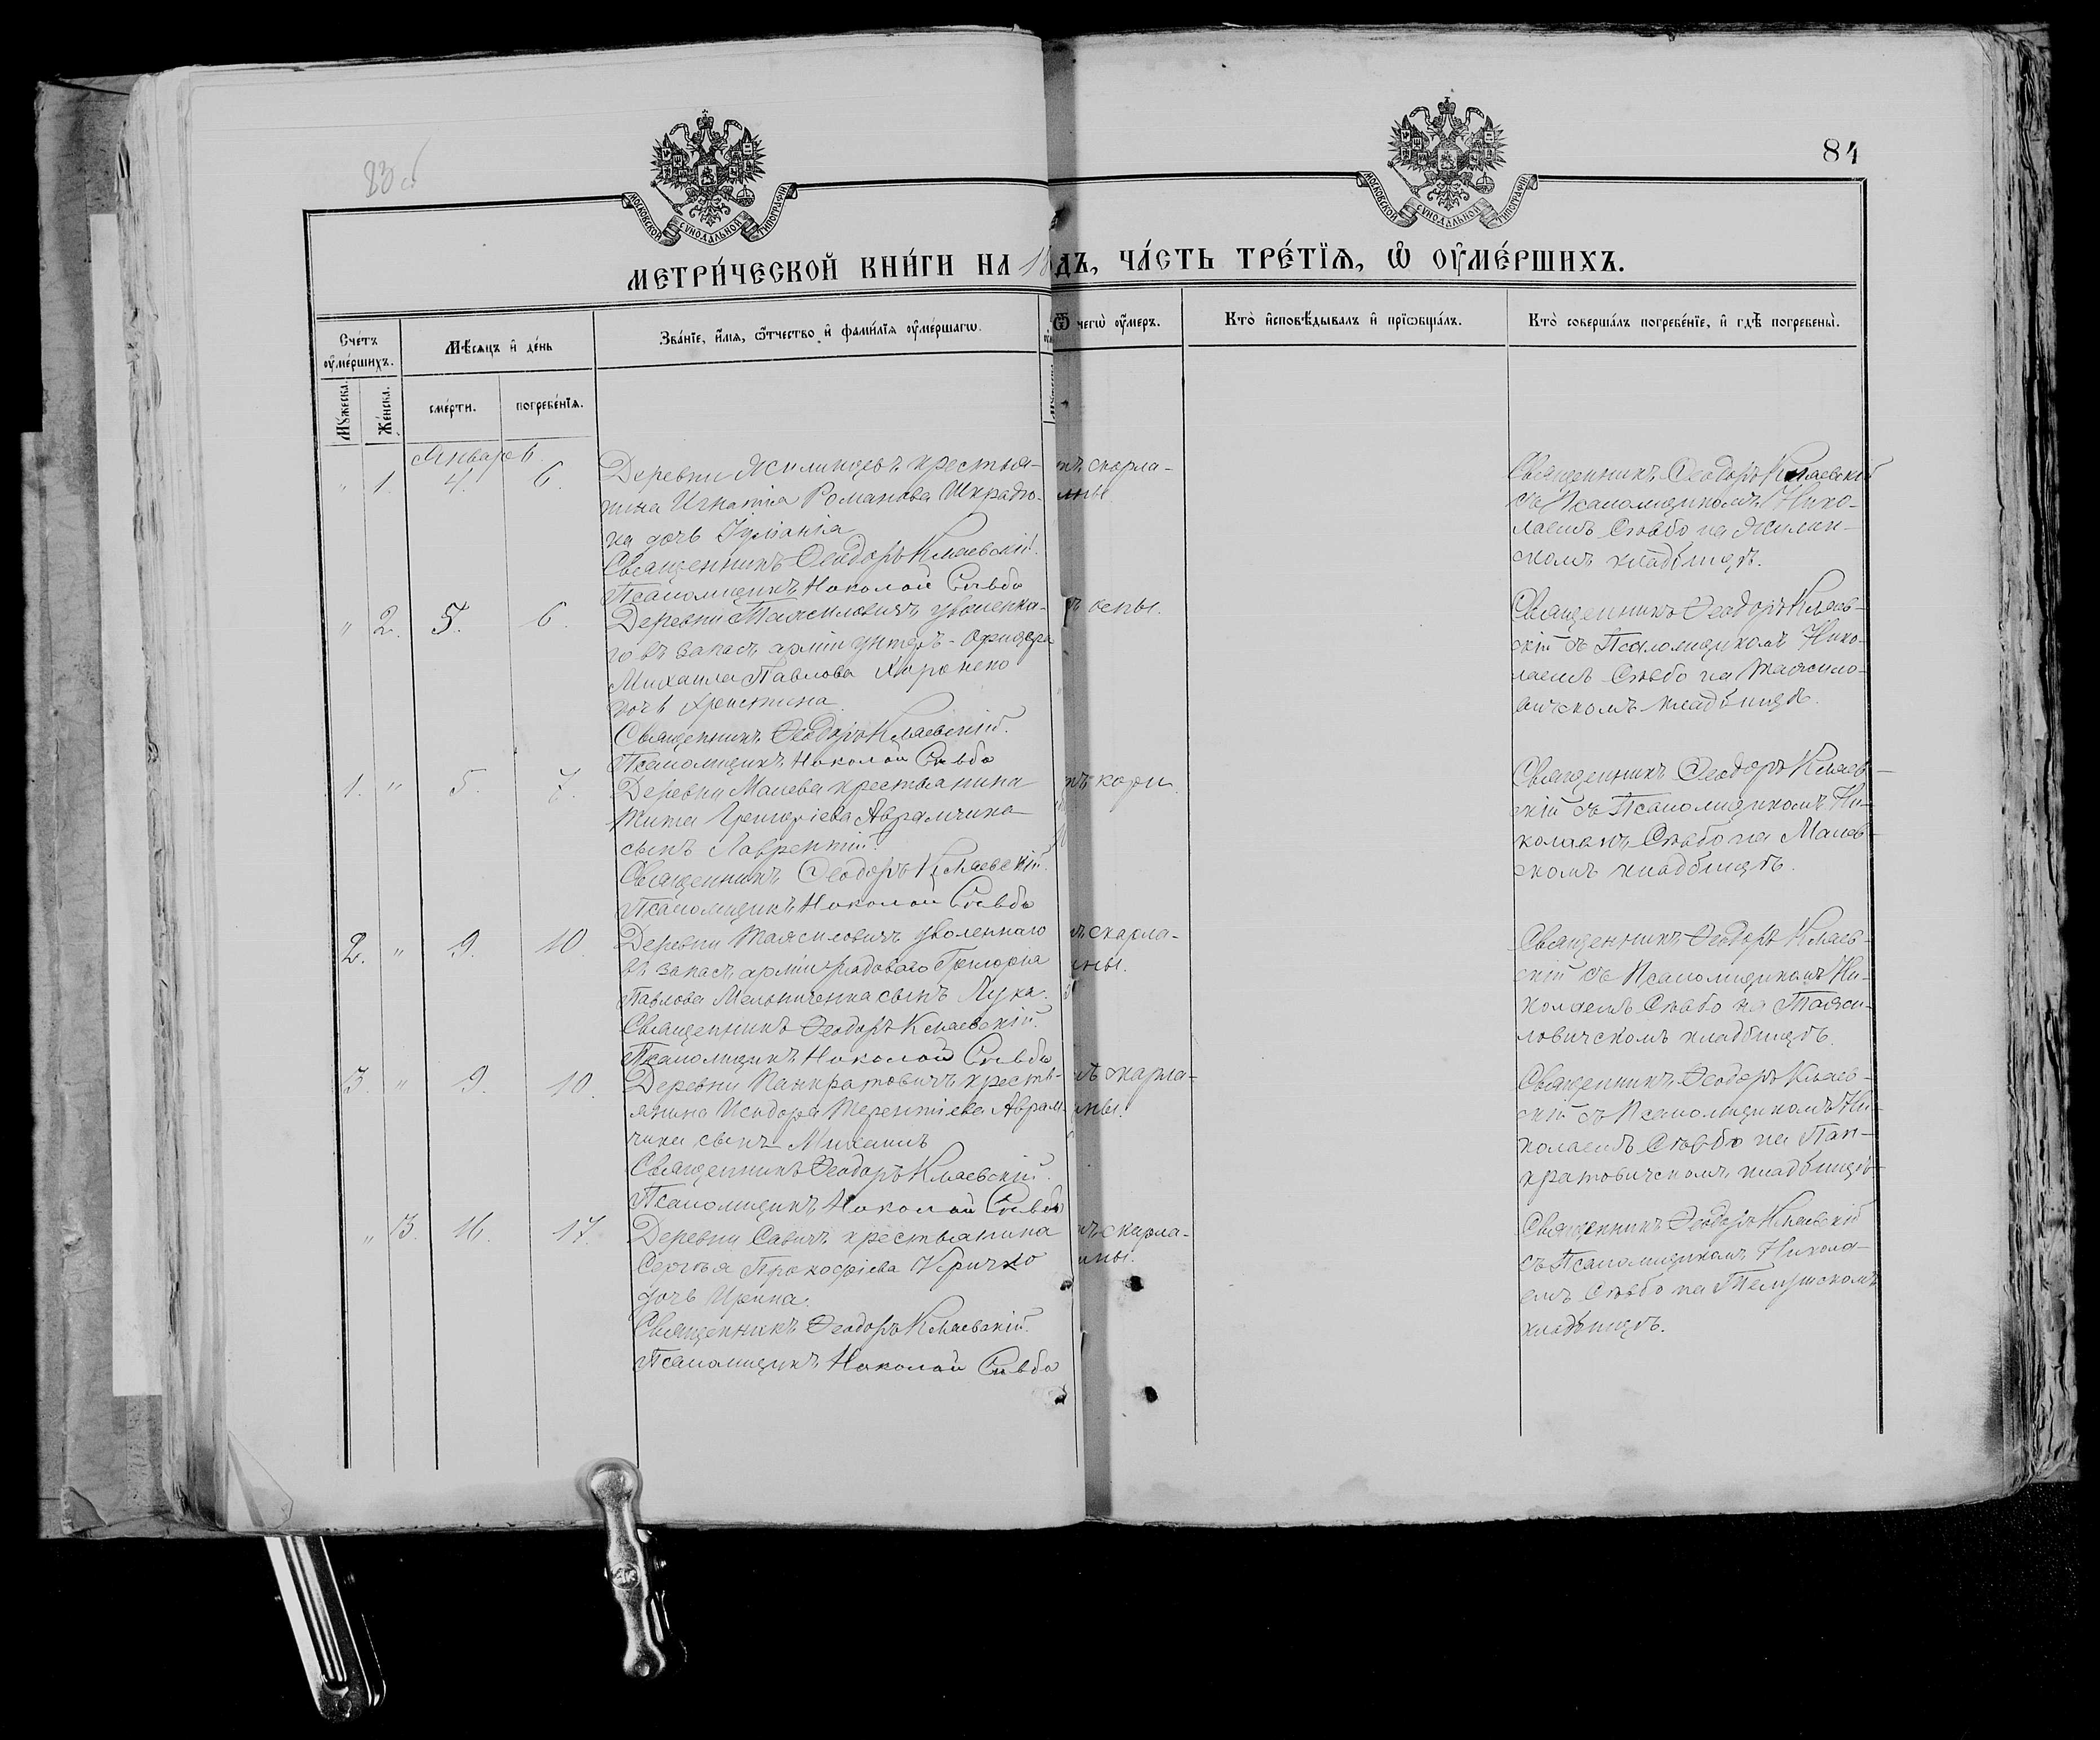 83 об
84
МОСКОВСКОЙ СѴНОДАЛЬНОЙ ТИПОГРАФІИ
МОСКОВСКОЙ СѴНОДАЛЬНОЙ ТИПОГРАФІИ
МЕТРИ́ЧЕСКОЙ КНИ́ГИ НА 18
ДЪ, ЧА́СТЬ ТРЕ́ТЇѦ, Ѡ ОУ҆МЕ́РШИХЪ.
Сче́тъ оу҆ме́ршихъ.
Мꙋ́жеска.
Же́нска.
Мѣ́сѧцъ и҆ де́нь
сме́рти.
погребе́нїѧ.
Зва́нїе, и҆́мѧ, ѻ҆́тчество и҆ фами́лїѧ оу҆ме́ршагѡ.
Ѿ чегѡ̀ оу҆́меръ.
Кто̀ и҆сповѣ́дывалъ и҆ прїѡбща́лъ.
Кто̀ соверша́лъ погребе́нїе, и҆ гдѣ̀ погребены̀.
Января
" 1. 4. 6.
Деревни крестья-
нина Игнатія Романова
на дочь
Священникъ Ѳеодоръ Клаевскій.
Псаломщикъ Николай Сѣвбо
скарла-
Священникъ Ѳеодоръ Клаевскій
съ Псаломщикомъ Нико-
лаемъ Сѣвбо на
скомъ кладбищѣ.
" 2. 5. 6.
Деревни уволенна-
го въ запасъ арміи унтеръ-офицера
Михаила Павлова
дочь Христина.
Священникъ Ѳеодоръ Клаевскій.
Псаломщикъ Николай Сѣвбо
оспы.
Священникъ Ѳеодоръ Клаев-
скій съ Псаломщикомъ Нико-
лаемъ Сѣвбо на
вичскомъ кладбищѣ.
1. " 5. 7.
Деревни Малева крестьянина
Тита Григоріева Аврамчика
сынъ Лаврентій.
Священникъ Ѳеодоръ Клаевскій.
Псаломщикъ Николай Сѣвбо
кори
Священникъ Ѳеодоръ Клаев-
скій съ Псаломщикомъ Ни-
колаемъ Сѣвбо на Малев-
скомъ кладбищѣ.
2. " 9. 10.
Деревни уволеннаго
въ запасъ арміи рядового Григорія
Павлова Мельниченка сынъ Лука.
Священникъ Ѳеодоръ Клаевскій.
Псаломщикъ Николай Сѣвбо
скарла-
ины.
Священникъ Ѳеодоръ Клаев-
скій съ Псаломщикомъ Ни-
колаемъ Сѣвбо на
ловичскомъ кладбищѣ.
3. " 9. 10.
Деревни Панкратовичъ кресть-
янина Исидора Терентіева Аврам-
чика сынъ Михаилъ
Священникъ Ѳеодоръ Клаевскій.
Псаломщикъ Николай Сѣвбо
скарла-
ины.
Священникъ Ѳеодоръ Клаев-
скій съ Псаломщикомъ Ни-
колаемъ Сѣвбо на Пан-
кратовичскомъ кладбищѣ
" 3. 16. 17.
Деревни Савичъ крестьянина
Сергѣя Прокофіева Киричко
дочь Ирина.
Священникъ Ѳеодоръ Клаевскій.
Псаломщикъ Николай Сѣвбо
скарла-
ины.
Священникъ Ѳеодоръ Клаевскій
съ Псаломщикомъ Никола-
емъ Сѣвбо на Телушскомъ
кладбищѣ.